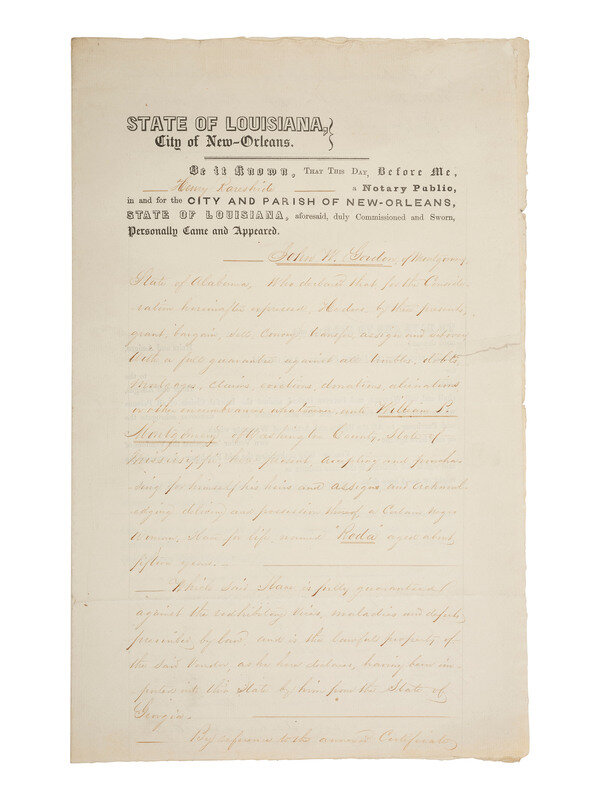 STATE OF LOUISIANA,
City of New-Orleans.
Be it Known, THAT THIS DAY, Before Me,
Henry a Notary Public,
in and for the CITY AND PARISH OF NEW-ORLEANS,
STATE OF LOUISIANA, aforesaid, duly Commissioned and Sworn,
Personally Came and Appeared.
John W. of Montgomery,
State of Alabama, Who declared that for the Conside-
ration hereinafter expressed, He does by these presents,
grant, bargain, sell, Convey, transfer, assign and
With a full guarantee against all troubles, debts,
Mortgages, Claims, evictions, donations, alienations
or other encumbrances whatsoever, unto William P.
Montgomery of Washington County, State of
Mississippi, here present, accepting and purcha-
sing for himself, his heirs and assigns, and acknowl-
edging delivery and possession thereof a Certain Negro
Woman, Slave for life, named "Roda" aged about
fifteen years.
Which said Slave is fully guaranteed
against the redhibitory vices, maladies and defects
prescribed by law, and is the lawful property of
the said Vendor, as he here declares, having been im-
ported into this State by him from the State of
Georgia
By reference to the annexed Certificate